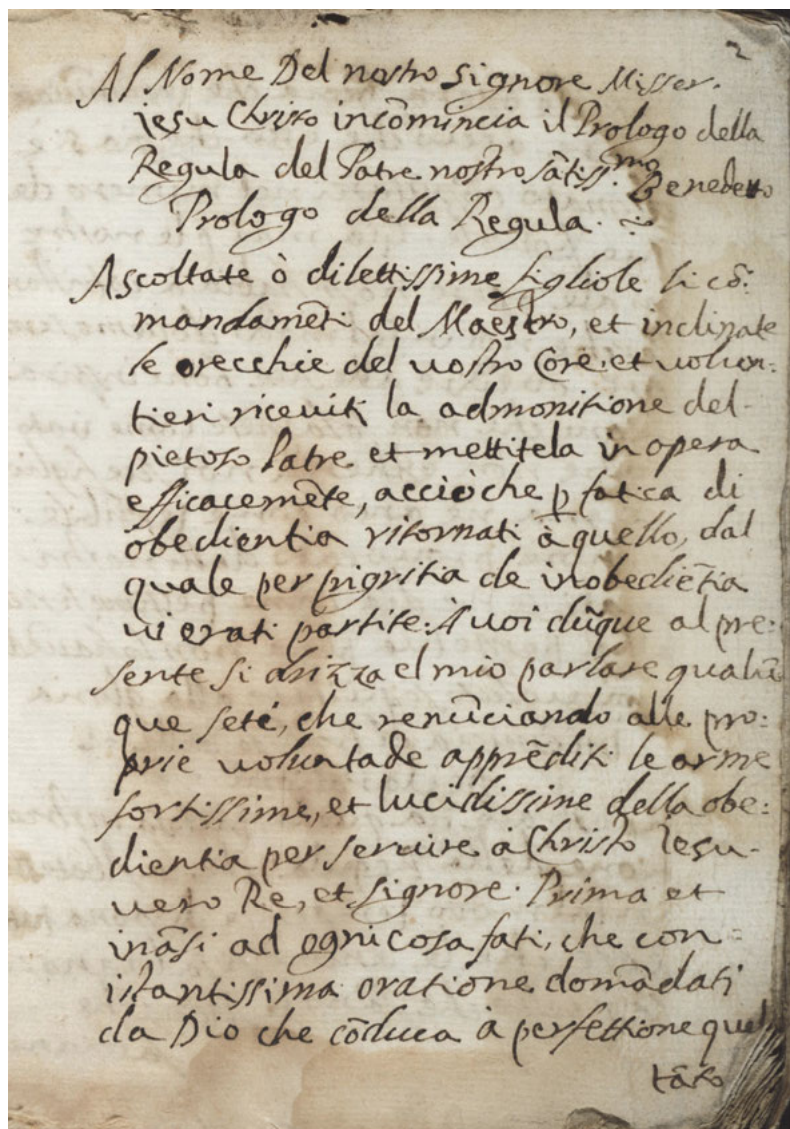 2
Al Nome Del nostro Signore Misser.
iesu Christo incōmincia il Prologo della
Regula del Patre nostro sātiss.mo Benedetto
Prologo della Regula.
Ascoltate ò dilettissime figliole li cō:
mandamēti del Maestro, et inclinate
le orecchie del vostro Core: et volun:
tieri riceviti la admonitione del
pietoso Patre et mettitela in opera
efficacemēte, acciòche p fatica di
obedientia ritornati à quello, dal
quale per pigritia de inobediētia
vi erati partite. A voi dūque al pre:
sente si drizza el mio parlare qualū
que sete, che renūciando alle pro:
prie voluntade apprēditi le arme
fortissime, et lucidissime della obe:
dientia per servire à Christo Iesu
vero Re, et Signore. Prima et
ināsi ad ogni cosa fati, che con
istantissima oratione domādati
da Dio che cōduca à perfettione quel
tāto